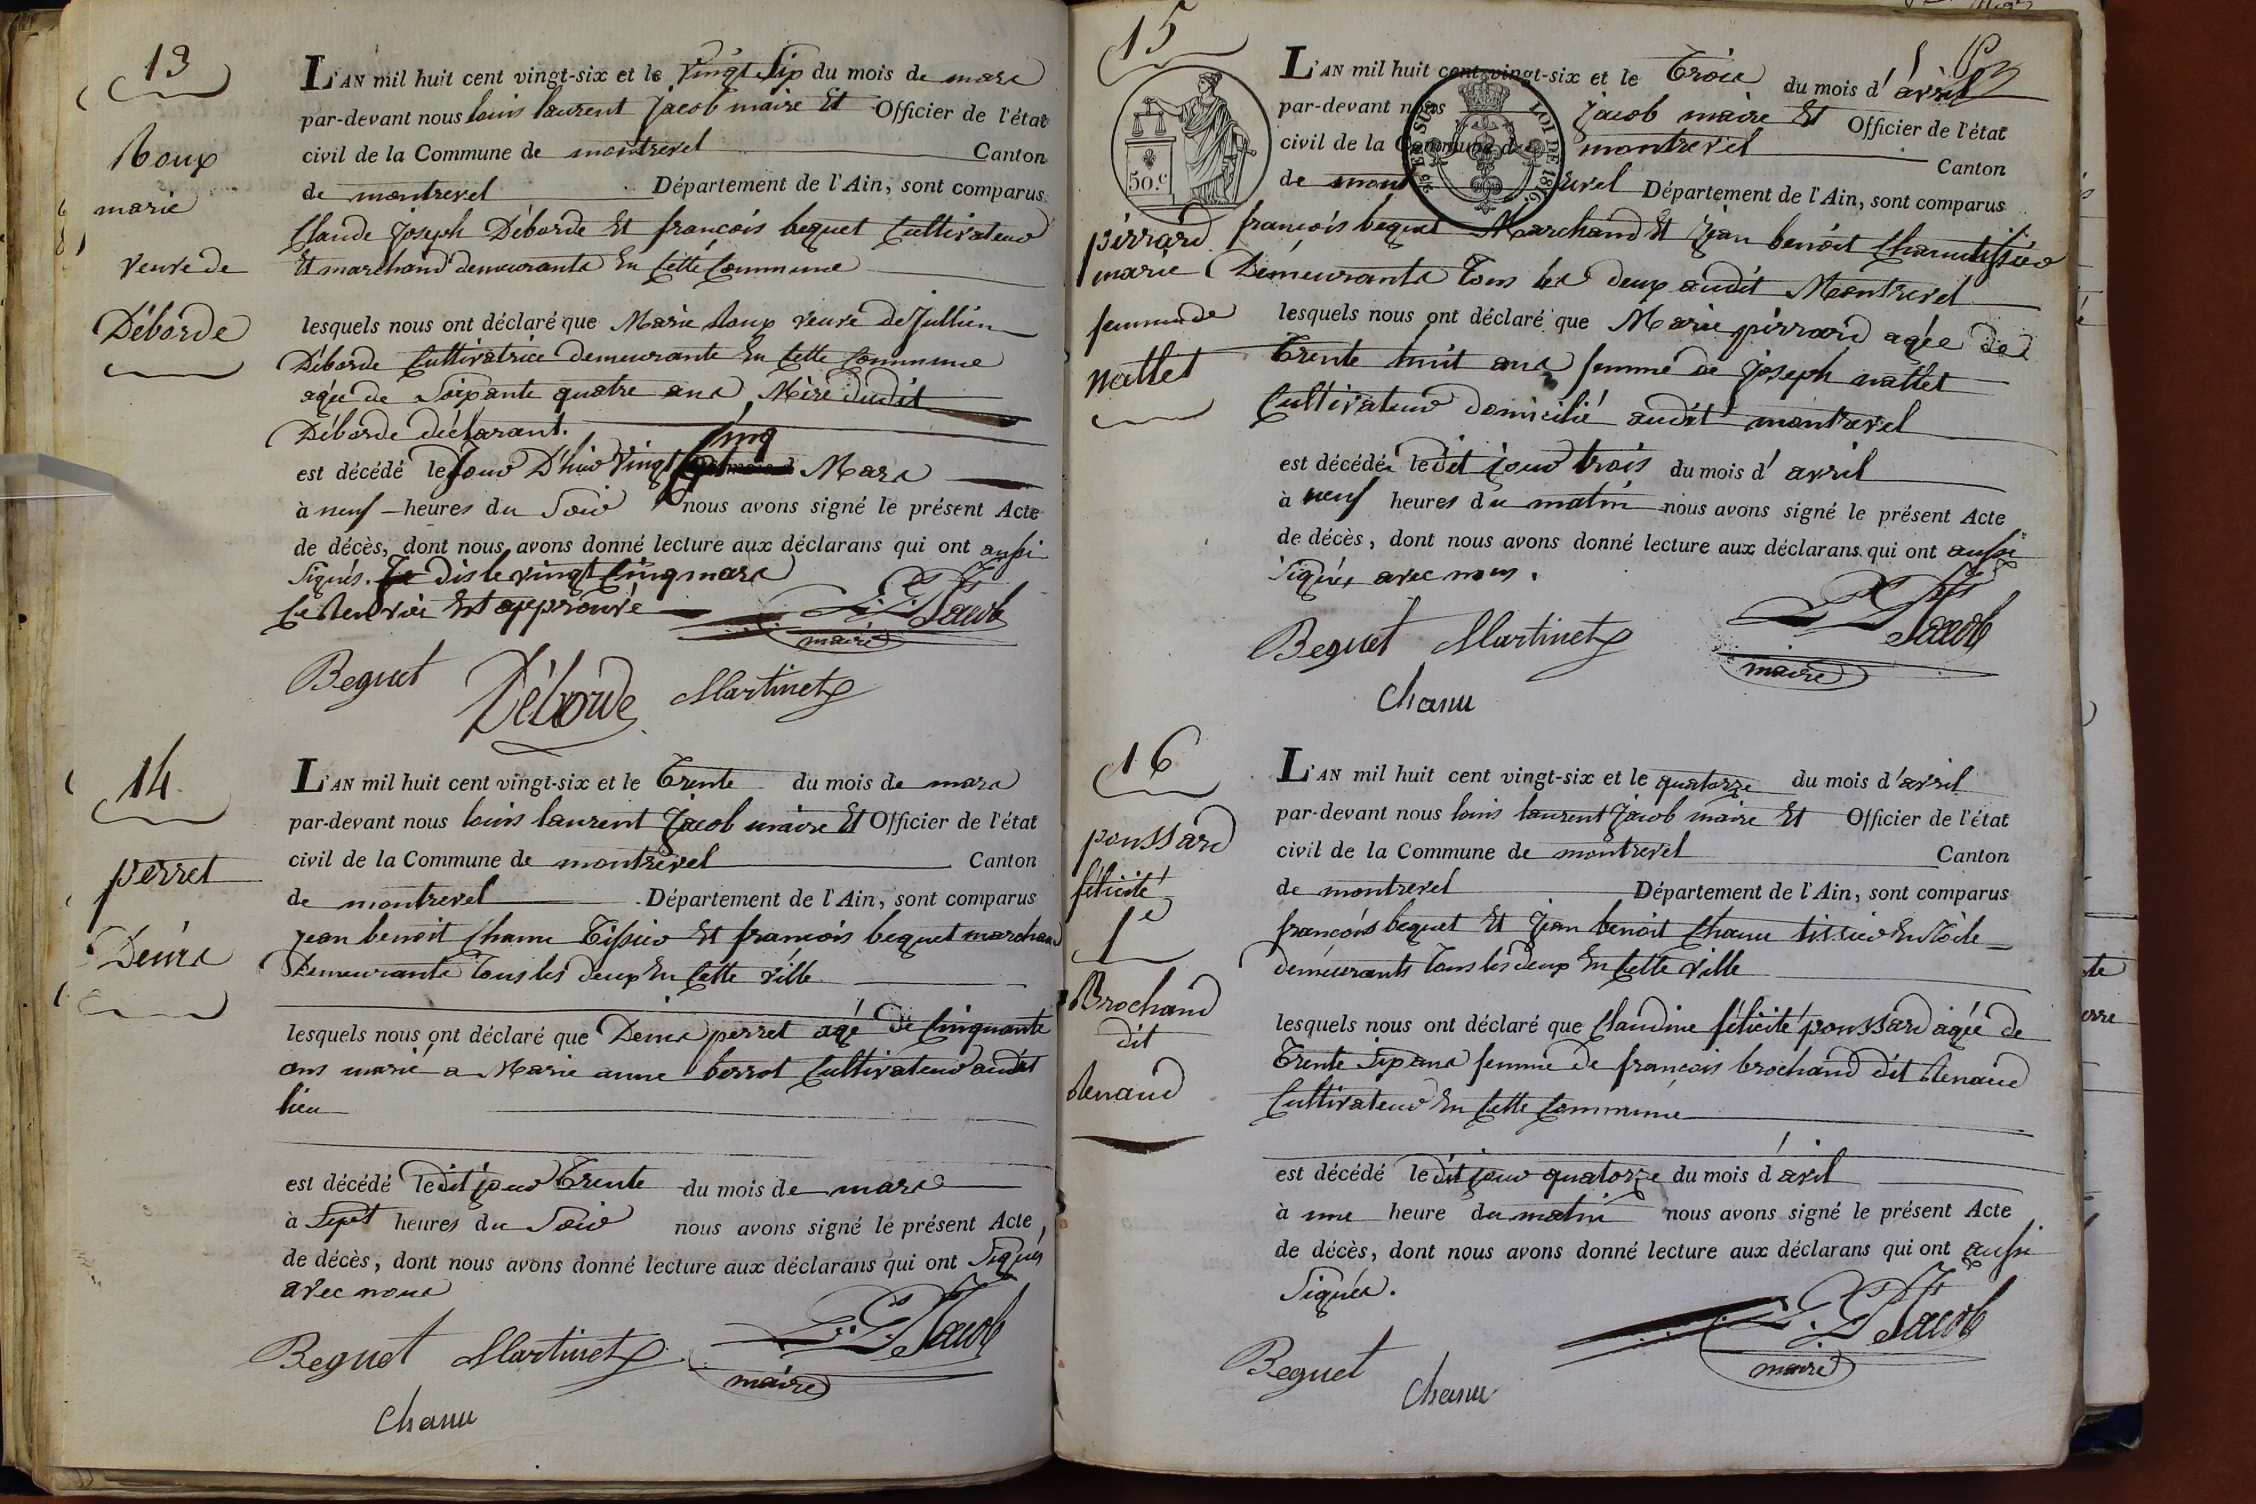 13
Roux
marie
veuve de
Déborde
L'AN mil huit cent vingt-six et le vingt Six du mois de mars
par-devant nous louis laurent jacob maire Et Officier de l'état
civil de la Commune de montrevel Canton
de montrevel Département de l'Ain, sont comparus
Claude joseph Déborde Et françois bequet Cultivateur
Et marchand demeurants En Cette Commune
lesquels nous ont déclaré que Marie Roux veuve De Jullien
Déborde Cultivatrice demeurante En Cette Commune
agée de Soixante quatre ans Mère dudit
Déborde déclarant.
est décédé le jour D'hier Vingt Cinq Mars
à neuf heures du Soir nous avons signé le présent Acte
de décès, dont nous avons donné lecture aux déclarans qui ont aussi
Signés. Je dis le vingt Cinq mars
Le Renvoi Est approuvé
L. L. Jacob
maire
Bequet Déborde Martinet
14
perret
Denis
L'AN mil huit cent vingt-six et le Trente du mois de mars
par-devant nous louis laurent Jacob maire Et Officier de l'état
civil de la Commune de montrevel Canton
de montrevel Département de l'Ain, sont comparus
jean benoit Chanu Tissier Et françois bequet marchand
Demeurants Tous les deux En Cette ville
lesquels nous ont déclaré que Denis perret agé de Cinquante
ans marié a Marie anne berrot Cultivateur audit
lieu
est décédé ledit jour Trente du mois de mars
à Sept heures du Soir nous avons signé le présent Acte,
de décès, dont nous avons donné lecture aux déclarans qui ont Signés
avec nous
L. L. Jacob
maire
Bequet Martinet
Chanu
15
50.c
LOI DE 1816.
pirrard
marie
femme de
nallet
L'AN mil huit cent vingt-six et le Trois du mois d'avril
par-devant nous jacob maire Et Officier de l'état
civil de la Commune de montrevel Canton
de montrevel Département de l'Ain, sont comparus
françois bequet Marchand Et Jean benoit Chanu tissier
Demeurants Tous les deux audit Montrevel
lesquels nous ont déclaré que Marie pirrard agée de
Trente huit ans femme de Joseph nallet
Cultivateur domicilié audit montrevel
est décédée ledit jour trois du mois d'avril
à neuf heures du matin nous avons signé le présent Acte
de décès, dont nous avons donné lecture aux déclarans qui ont aussi
Signés avec nous.
L. L. Jacob
maire
Bequet Martinet
Chanu
16
poussard
félicité
fe
Brochand
dit
Renaud
L'AN mil huit cent vingt-six et le quatorze du mois d'avril
par-devant nous louis laurent Jacob maire Et Officier de l'état
civil de la Commune de montrevel Canton
de montrevel Département de l'Ain, sont comparus
françois bequet Et Jean benoit Chanu tissier En toile
demeurants Tous les deux En Cette ville
lesquels nous ont déclaré que Claudine félicité poussard agée de
Trente Six ans femme de françois brochand dit Renaud
Cultivateur En Cette Commune
est décédé ledit jour quatorze du mois d'avril
à une heure du matin nous avons signé le présent Acte
de décès, dont nous avons donné lecture aux déclarans qui ont aussi
Signés.
L. L. Jacob
maire
Bequet
Chanu